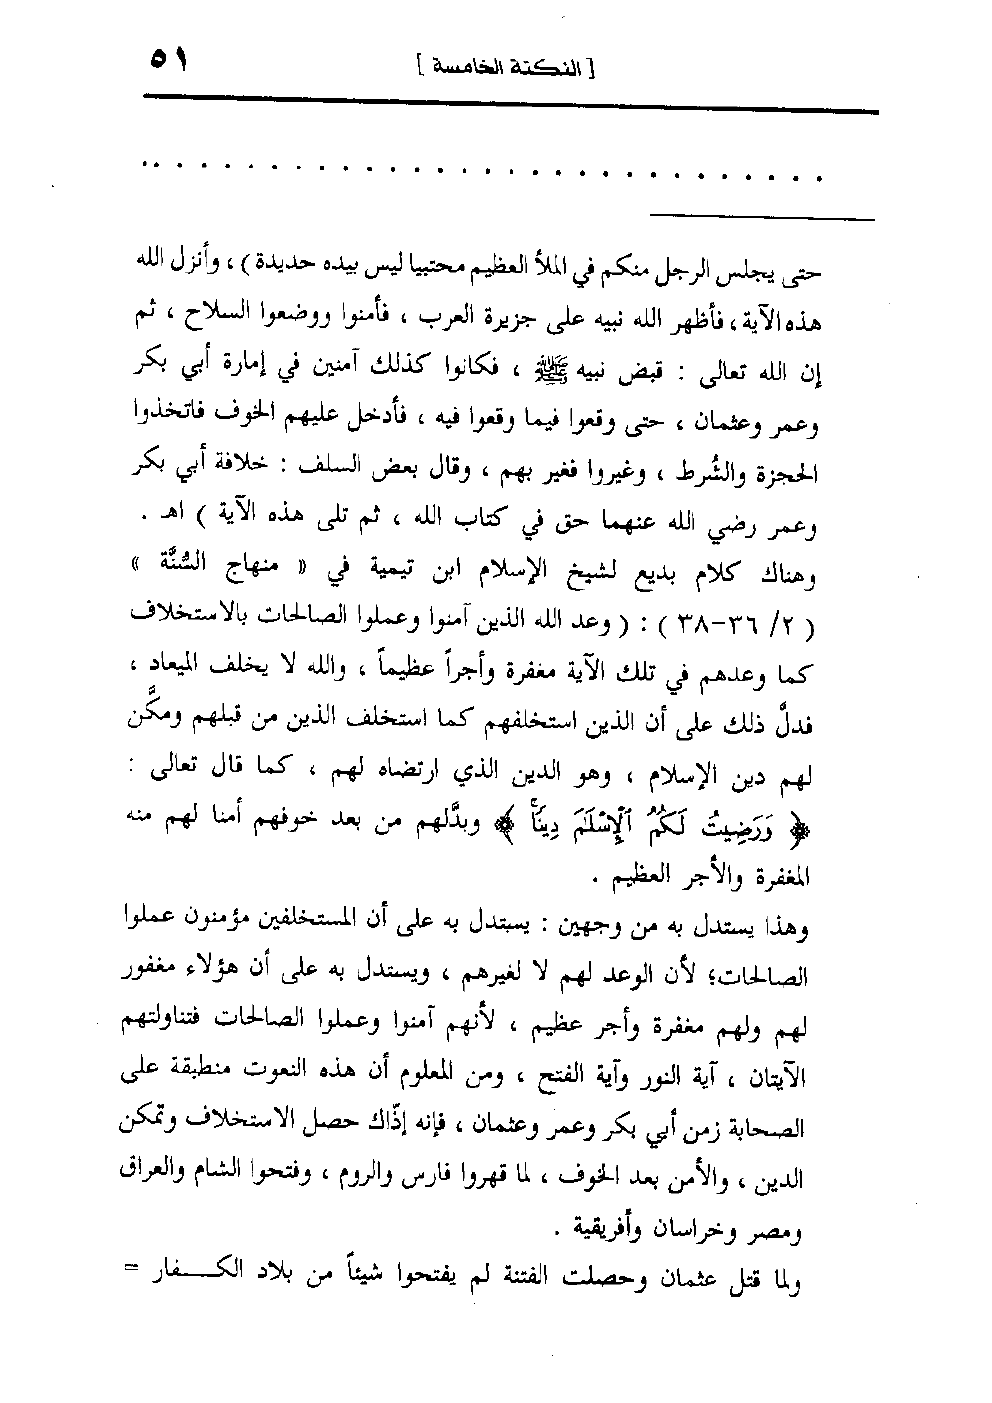 [ النكتة الخامسة ] ٥١
. . . . . . . . . . . . . . . . . . . . . . . . . . . . . .
حتى يجلس الرجل منكم في الملأ العظيم محتبيا ليس بيده حديدة ) ، وأنزل الله
هذه الآية ، فأظهر الله نبيه على جزيرة العرب ، فأمنوا ووضعوا السلاح ، ثم
إن الله تعالى : قبض نبيه ﷺ ، فكانوا كذلك آمنين في إمارة أبي بكر
وعمر وعثمان ، حتى وقعوا فيما وقعوا فيه ، فأدخل عليهم الخوف فاتخذوا
الحجزة والشُرط ، وغيروا فغير بهم ، وقال بعض السلف : خلافة أبي بكر
وعمر رضي الله عنهما حق في كتاب الله ، ثم تلى هذه الآية ) اهـ .
وهناك كلام بديع لشيخ الإسلام ابن تيمية في « منهاج السُّنَّة »
( ٢/ ٣٦-٣٨ ) : ( وعد الله الذين آمنوا وعملوا الصالحات بالاستخلاف
كما وعدهم في تلك الآية مغفرة وأجراً عظيماً ، والله لا يخلف الميعاد ،
فدلَّ ذلك على أن الذين استخلفهم كما استخلف الذين من قبلهم ومكَّن
لهم دين الإسلام ، وهو الدين الذي ارتضاه لهم ، كما قال تعالى :
﴿ وَرَضِيتُ لَكُمُ ٱلْإِسْلَٰمَ دِينًا ﴾ وبدَّلهم من بعد خوفهم أمنا لهم منه
المغفرة والأجر العظيم .
وهذا يستدل به من وجهين : يستدل به على أن المستخلفين مؤمنون عملوا
الصالحات؛ لأن الوعد لهم لا لغيرهم ، ويستدل به على أن هؤلاء مغفور
لهم ولهم مغفرة وأجر عظيم ، لأنهم آمنوا وعملوا الصالحات فتناولتهم
الآيتان ، آية النور وآية الفتح ، ومن المعلوم أن هذه النعوت منطبقة على
الصحابة زمن أبي بكر وعمر وعثمان ، فإنه إذّاك حصل الاستخلاف وتمكن
الدين ، والأمن بعد الخوف ، لما قهروا فارس والروم ، وفتحوا الشام والعراق
ومصر وخراسان وأفريقية .
ولما قتل عثمان وحصلت الفتنة لم يفتحوا شيئاً من بلاد الكـــفار =